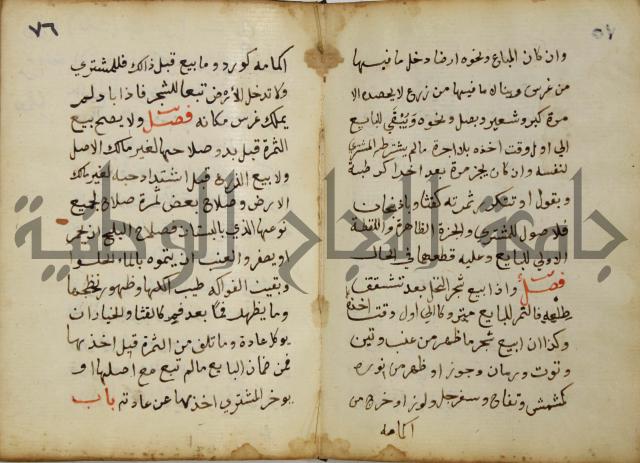 ٥٧
وان كان المباع ارضا ونحوه دخل ما فيها
من غرس وبناء لا ما فيها من زرع لا يحصد الا
مرة كبر وشعير وبصل ونحوه ويبقي للبايع
الي اول وقت اخذه بلا اجرة مالم يشترطه المشتري
لنفسه وان كان يجز مرة بعد اخرا كرطبة
وبقول او تتكرر ثمرته كقثا وباذنجان
فلاصول للمشتري والجزة الظاهرة واللقطة
الاولي للبايع وعليه قطعها في الحال
فصل واذا بيع شجر النخل بعد تشقق
طلعه فالثمر للبايع متروكا الي اول وقت اخذه
وكذا ان ابيع شجر ما ظهر من عنب وتين
وتوت ورمان وجوز او ظهر من نوره
كمشمش وتفاح وسفرجل ولوز او خرج من
اكمامه
٧٦
اكمامه كورد وما بيع قبل ذالك فللمشتري
ولا تدخل الارض تبعا للشجر فاذا باد لم
يملك غرس مكانه فصل ولا يصح بيع
الثمرة قبل بدو صلاحها لغير مالك الاصل
ولا بيع الزرع قبل اشتداد حبه لغير مالك
الارض وصلاح بعض ثمرة صلاح لجميع
نوعها الذي بالبستان فصلاح البلح ان يحمر
او يصفر والعنب ان يتموه بالماء الحلو
وبقيت الفواكه طيب اكلها وظهور نضجها
وما يظهر فما بعد فم كالقثا والخيار ان
يوكل عادة وما تلف من الثمرة قبل اخذها
فمن ضمان البايع مالم تبع مع اصلها او
يوخر المشتري اخذها عن عادته باب
جامعة النجاح الوطنية